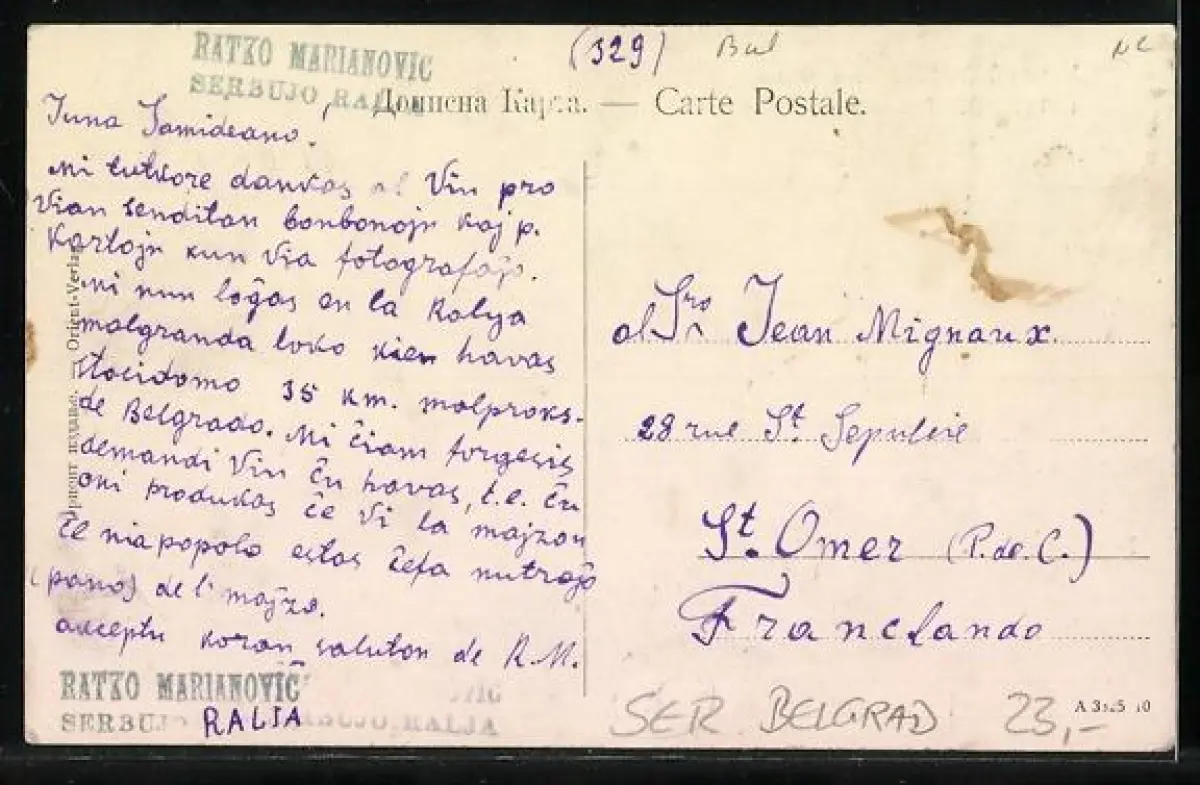 RATKO MARIANOVIC
SERBUJO RALJA
(329)
Bul
Дописна Карта. — Carte Postale.
Juna Samideano.
Mi tutkore dankas al Vin pro
Vian senditan bonbonojn kaj p.
Kartojn kun Via fotografaĵo.
Mi nun loĝas en la Ralya
malgranda loko kien havas
stacidomo 35 km. malproks-
de Belgrado. Mi ĉiam forgesis
demandi Vin ĉu havas, t.e. ĉu
oni produkas ĉe Vi la majzon
Ĉe nia popolo estas ĉefa nutraĵo
(pano) de l' majzo.
akceptu koran saluton de R.M.
RATKO MARIANOVIC
SERBUJO RALJA
RALIA
Orient-Verlag
al Sro Jean Mignaux
28 rue St. Sepulcre
St. Omer (P. de C.)
Franclando
SER. BELGRAD 23,-